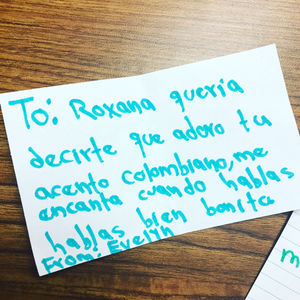 To: Roxana queria
decirte que adoro tu
acento colombiano, me
encanta cuando hablas
hablas bien bonita
From: Evelin
m